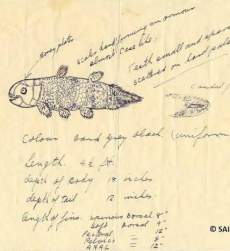 bony plate
scales hard forming an armour
almost case like
Teeth small and
scattered on hard palate
Colour hard grey black (uniform
Length: 4½ ft.
depth of body 18 inches
depth of tail 12 inches
length of fins spinous Dorsal 8"
Soft Dorsal
Pectoral 12"
Pelvics 8"
Anal
© SAI